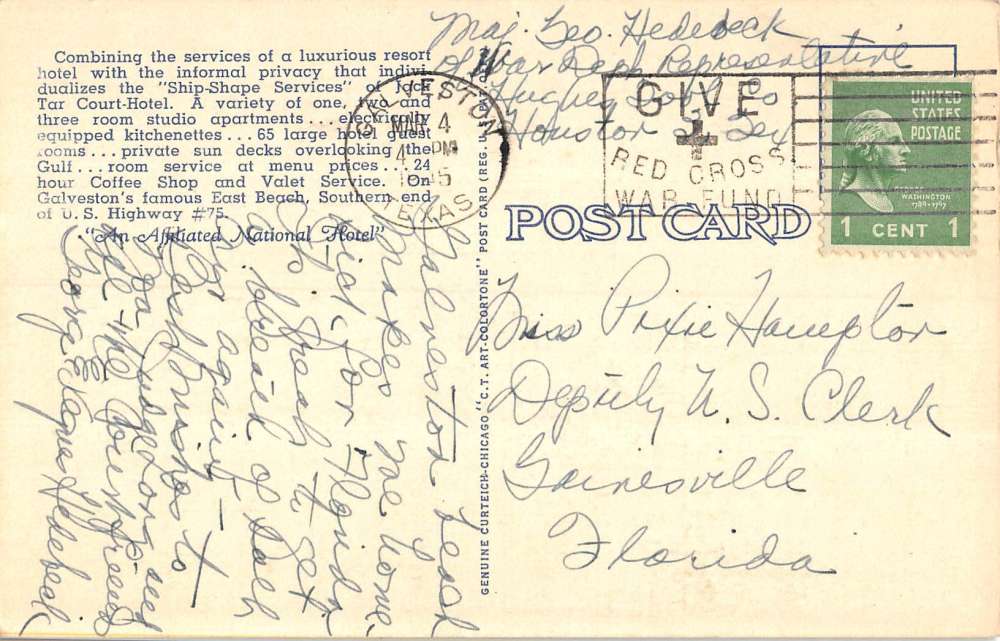 Combining the services of a luxurious resort
hotel with the informal privacy that indivi-
dualizes the "Ship-Shape Services" of Jack
Tar Court-Hotel. A variety of one, two and
three room studio apartments... electrically
equipped kitchenettes... 65 large hotel guest
rooms... private sun decks overlooking the
Gulf... room service at menu prices... 24
hour Coffee Shop and Valet Service. On
Galveston's famous East Beach, Southern end
of U. S. Highway #75.
"An Affiliated National Hotel"
Maj. Geo. Hedebeck
War Dept Representative
Hughes Tool Co
Houston
GALVESTON
MAR 4
4 PM
1945
TEXAS
GIVE
RED CROSS
WAR FUND
UNITED
STATES
POSTAGE
WASHINGTON
1789-1797
1 CENT 1
POST CARD
GENUINE CURTEICH-CHICAGO "C.T. ART-COLORTONE" POST CARD (REG. U.S. PAT. OFF.)
Miss Pixie Hampton
Deputy U. S. Clerk
Gainesville
Florida
Galveston
makes me home
sick for Florida
to get
a breath of salt
air again -
Best wishes to
Judge Long
all the court friends
George Hedebeck